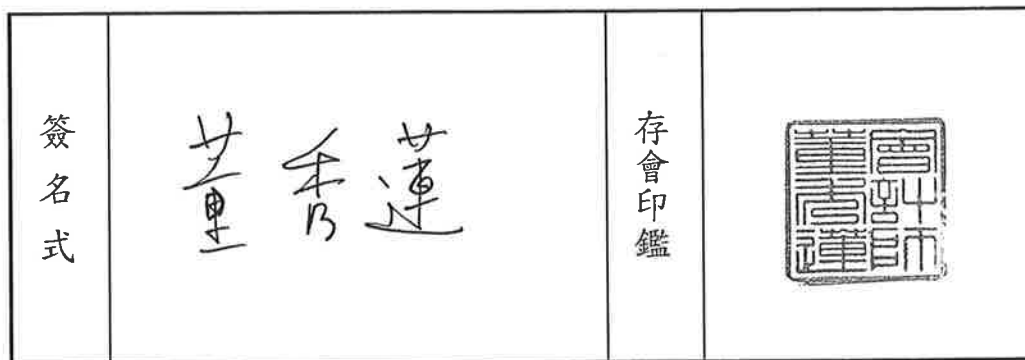 簽名式
董秀蓮
存會印鑑
會計師
董秀蓮